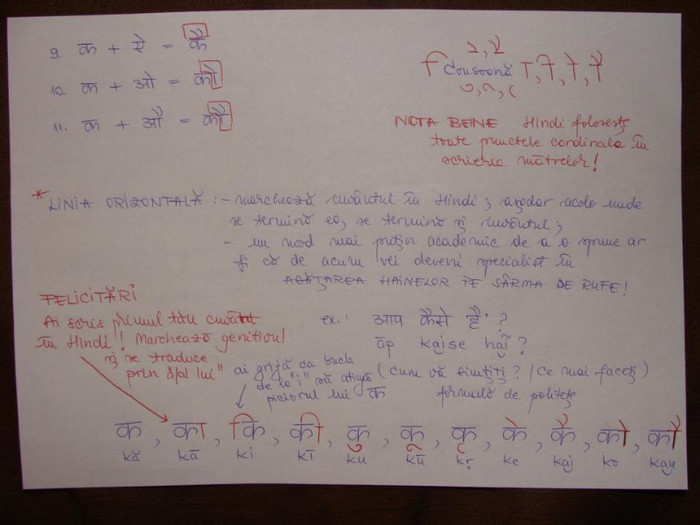 9. क + ऐ = कै
10. क + ओ = को
11. क + औ = कौ
Consoană
NOTA BENE Hindi folosește
toate punctele cardinale în
scrierea mātrelor!
*LINIA ORIZONTALĂ : - marchează cuvântul în Hindi; așadar acolo unde
se termină ea, se termină și cuvântul;
- un mod mai puțin academic de a o spune ar
fi că de acum vei deveni specialist în
AGĂȚAREA HAINELOR PE SÂRMA DE RUFE!
FELICITĂRI
Ai scris primul tău cuvânt
în Hindi! Marchează genitivul
și se traduce
prin "al lui"
ex.: आप कैसे हैं ?
āp kajse haj̃ ?
(cum vă simțiți? / Ce mai faceți)
formulă de politețe
ai grijă ca bucla
de la "i" să atingă
piciorul lui क
क, का, कि, की, कु, कू, कृ, के, कै, को, कौ
kă kā ki kī ku kū kṛ ke kaj ko kau